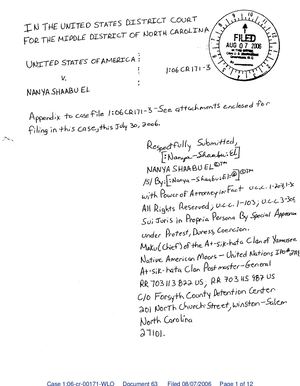 IN THE UNITED STATES DISTRICT COURT
FOR THE MIDDLE DISTRICT OF NORTH CAROLINA
FILED
AUG 07 2006
UNITED STATES OF AMERICA :
V. : 1:06CR171-3
NANYA SHAABU EL :
Appendix to case file 1:06CR171-3-See attachments enclosed for
filing in this case, this July 30, 2006.
Respectfully Submitted,
[:Nanya-Shaabu:EL]
NANYA SHAABU EL©™
/S/ By:[:Nanya-Shaabu:El]®©™
with Power of Attorney in Fact U.C.C. 1-207/1-
All Rights Reserved; U.C.C. 1-103; U.C.C 3-
Sui Juris in Propria Persona By Special Appearance
under Protest, Duress, Coercion.
Maku (Chief) of the At-sik-hata Clan of Yamasee
Native American Moors - United Nations
At-sik-hata Clan Postmaster-General
RR 703 113 822 US, RR 703 115 987 US
C/O Forsyth County Detention Center
201 North Church Street, Winston-Salem
North Carolina
27101.
Case 1:06-cr-00171-WLO Document 63 Filed 08/07/2006 Page 1 of 12